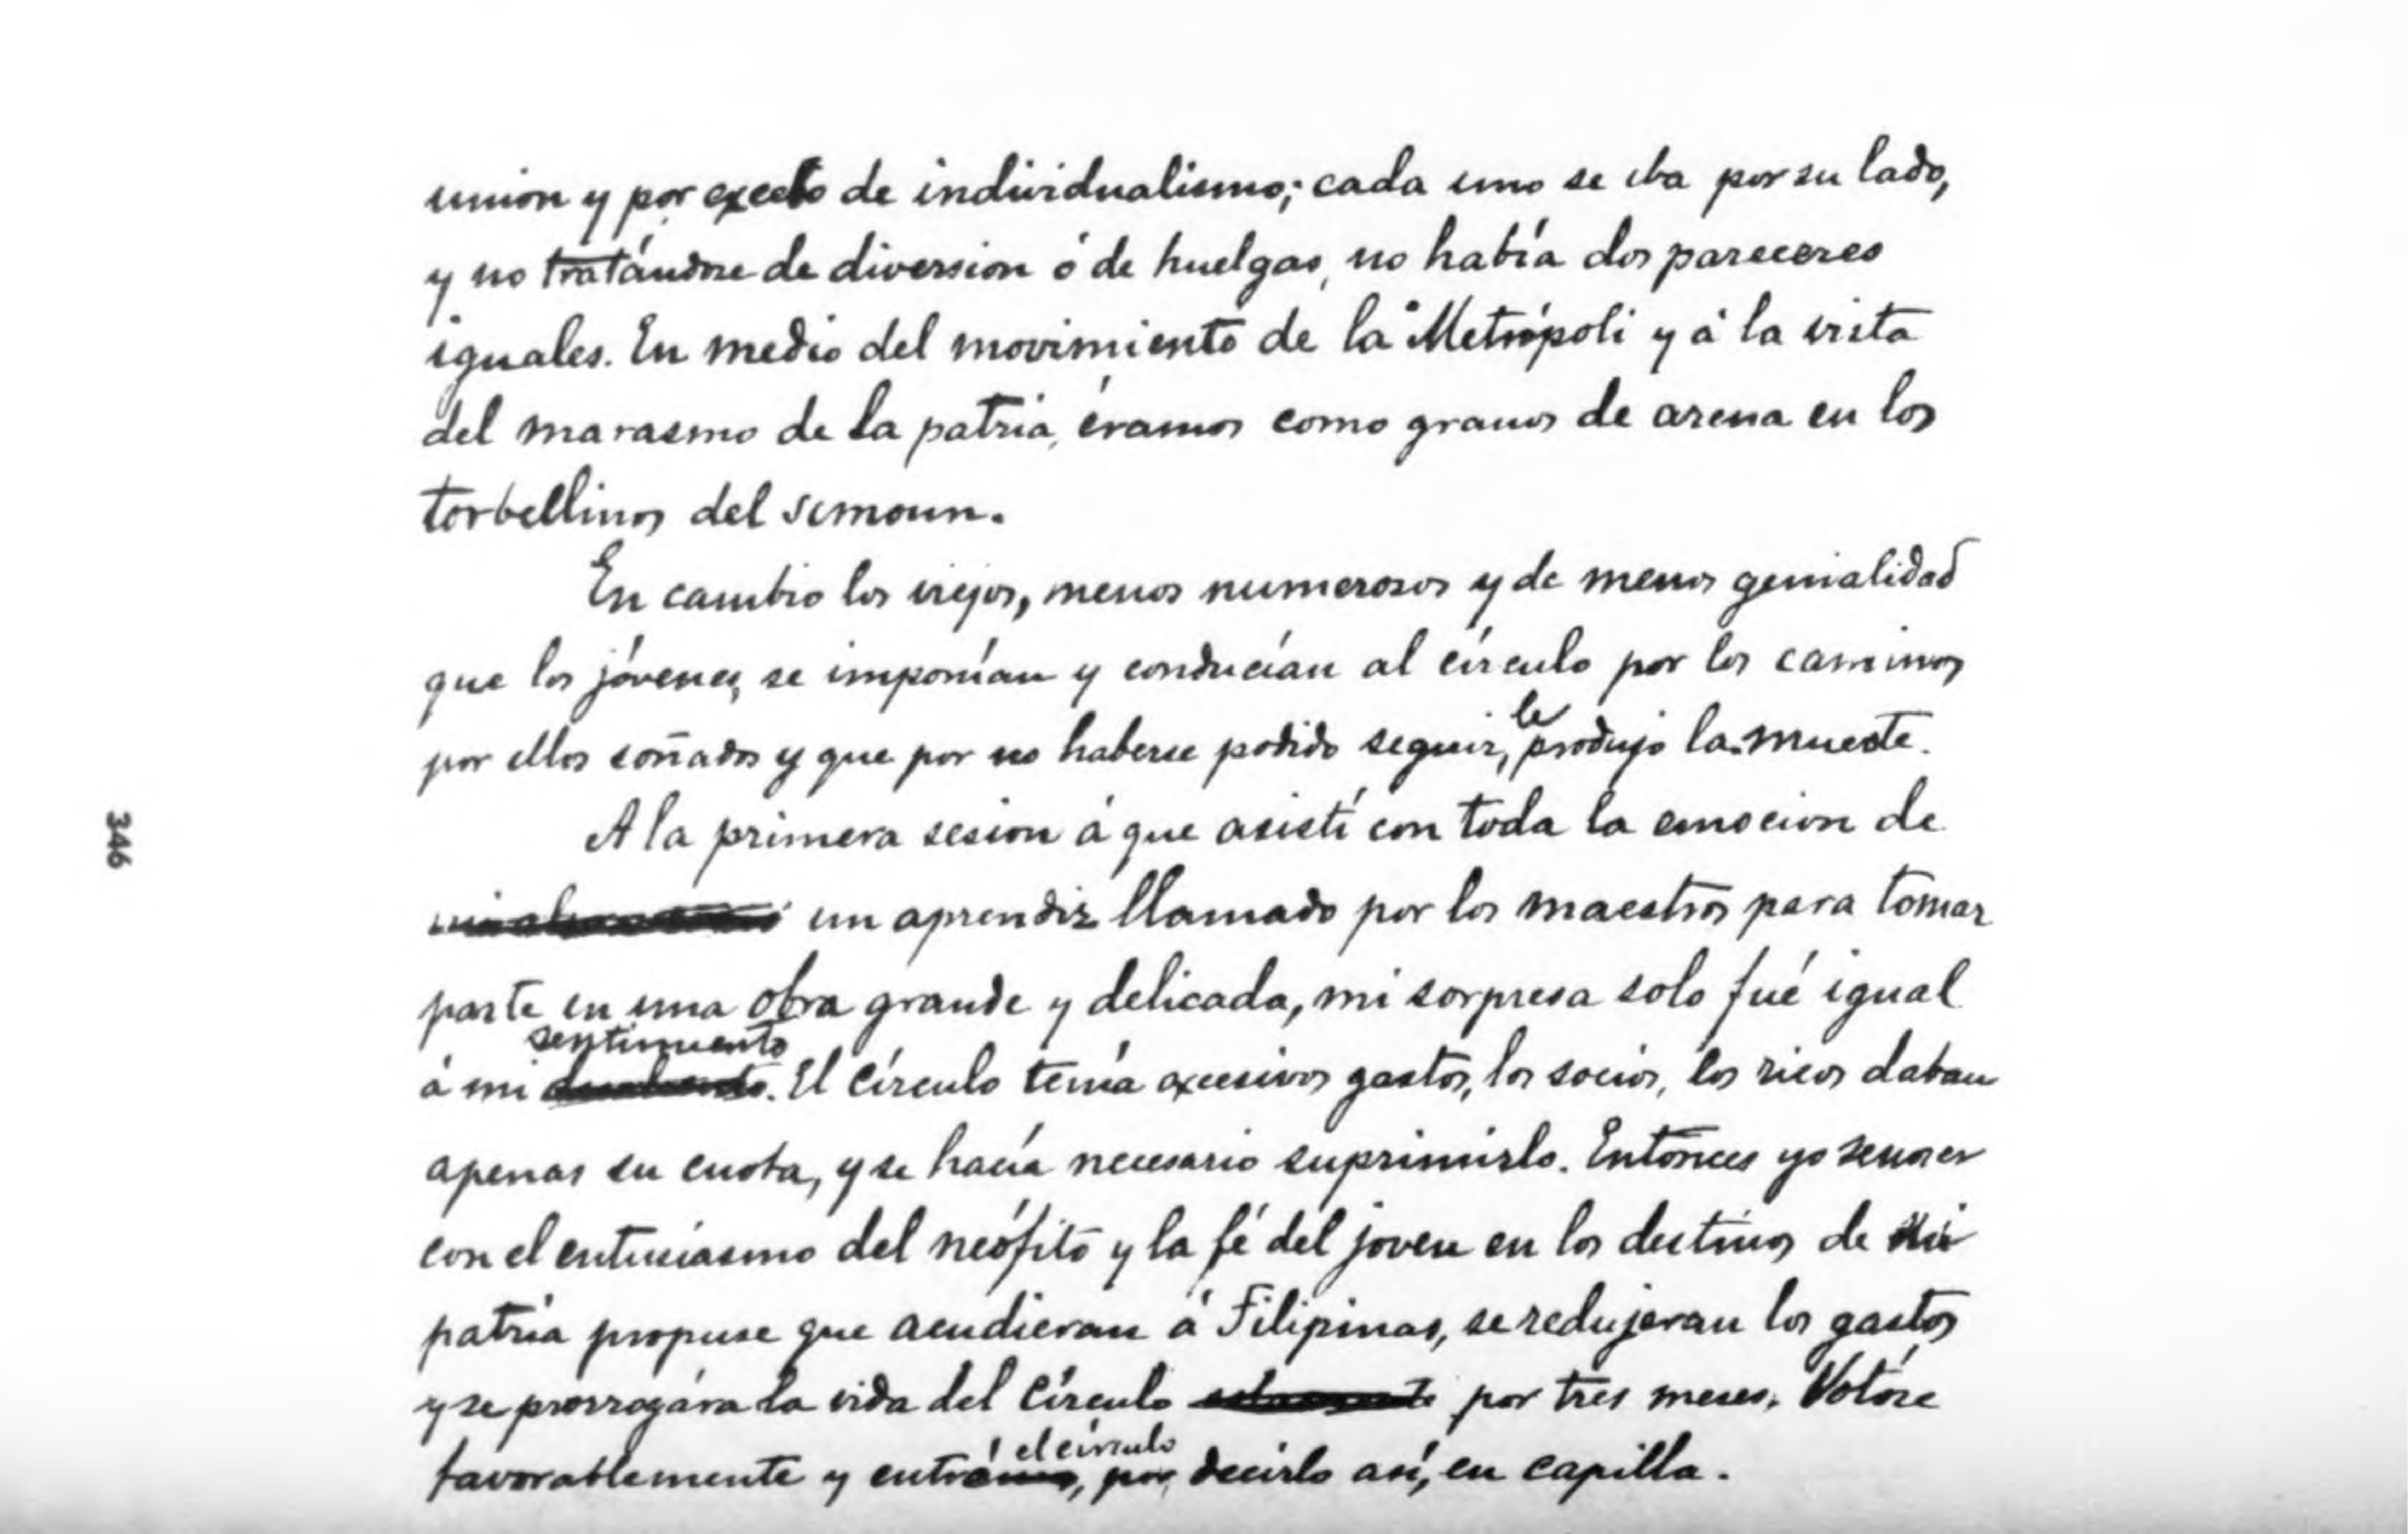 union y por exceso de individualismo; cada uno se iba por su lado,
y no tratándose de diversion ó de huelgas, no había dos pareceres
iguales. En medio del movimiento de la Metrópoli y á la vista
del marasmo de la patria, éramos como granos de arena en los
torbellinos del simoun.
En cambio los viejos, menos numerosos y de menos genialidad
que los jóvenes, se imponían y conducían al círculo por los caminos
por ellos soñados y que por no haberse podido seguir, le produjo la muerte.
A la primera sesion á que asistí con toda la emocion de
346
un aprendiz llamado por los maestros para tomar
parte en una obra grande y delicada, mi sorpresa solo fué igual
á mi sentimiento. El Círculo tenía excesivos gastos, los socios, los ricos daban
apenas su cuota, y se hacía necesario suprimirlo. Entonces yo
con el entusiasmo del neófito y la fé del joven en los destinos de mi
patria propuse que acudieran á Filipinas, se redujeran los gastos
y se prorrogára la vida del Círculo por tres meses. Votóse
favorablemente y entró el círculo, por decirlo así, en capilla.